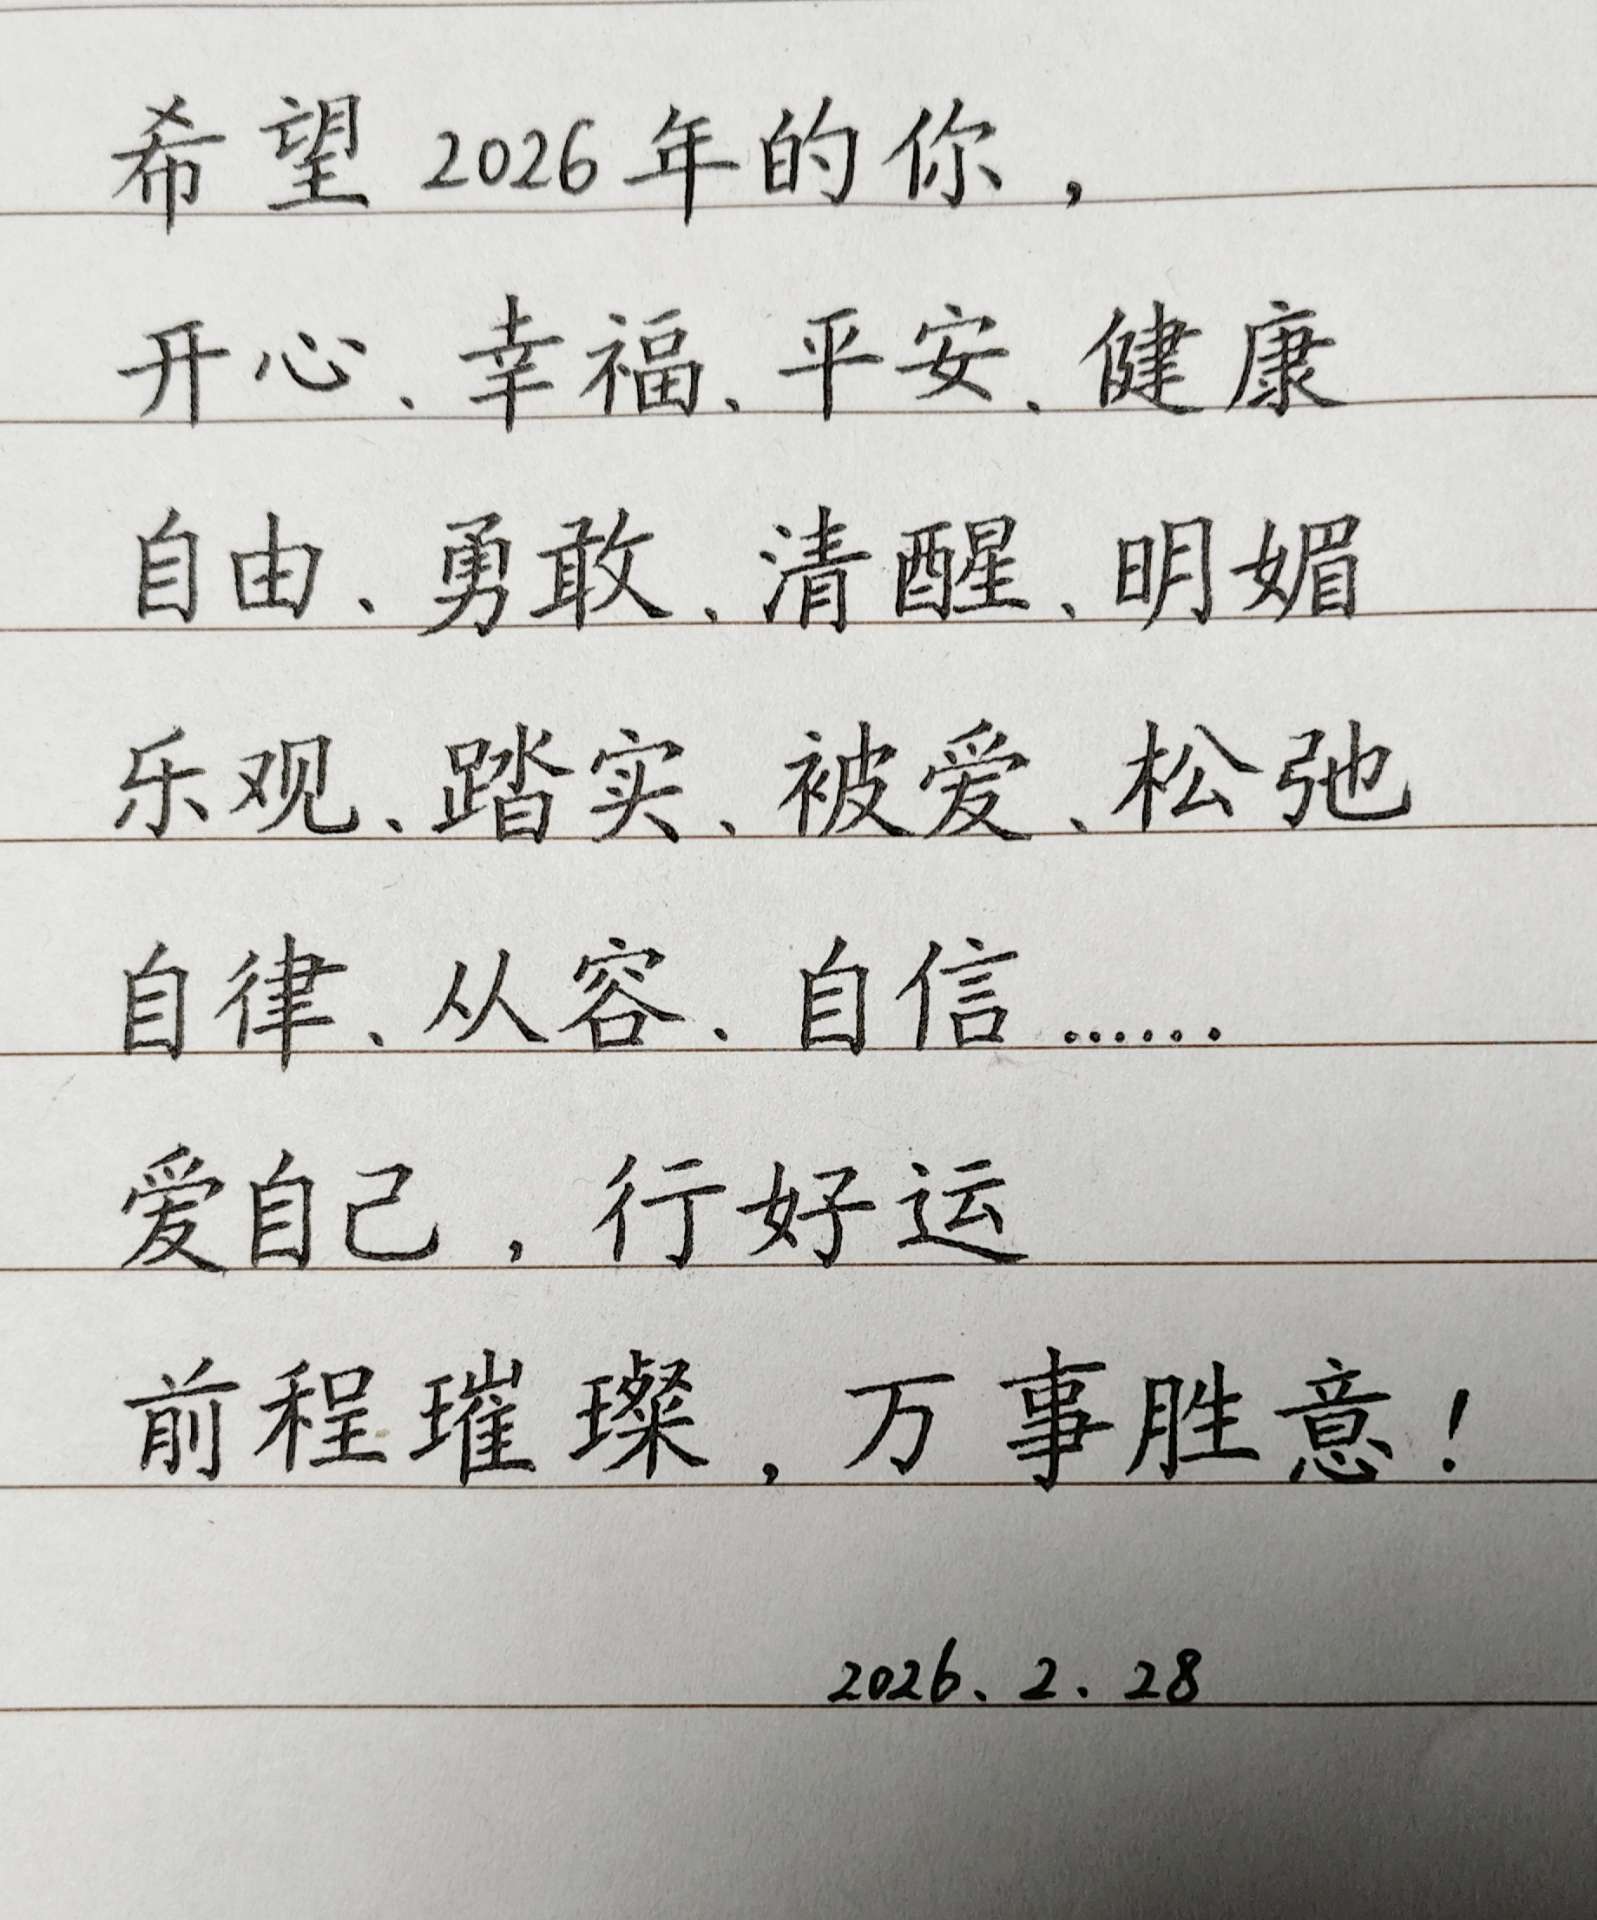 希望2026年的你，
开心、幸福、平安、健康
自由、勇敢、清醒、明媚
乐观、踏实、被爱、松弛
自律、从容、自信……
爱自己，行好运
前程璀璨，万事胜意！
2026.2.28